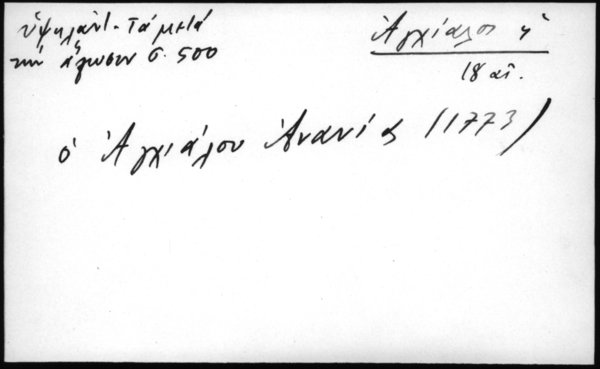 ὑψηλάντ. Τὰ μετά
τὴν ἅλωσιν σ. 500
Ἀγχίαλος ἡ
18 αἰ.
ὁ Ἀγχιάλου Ἀνανίας (1773)